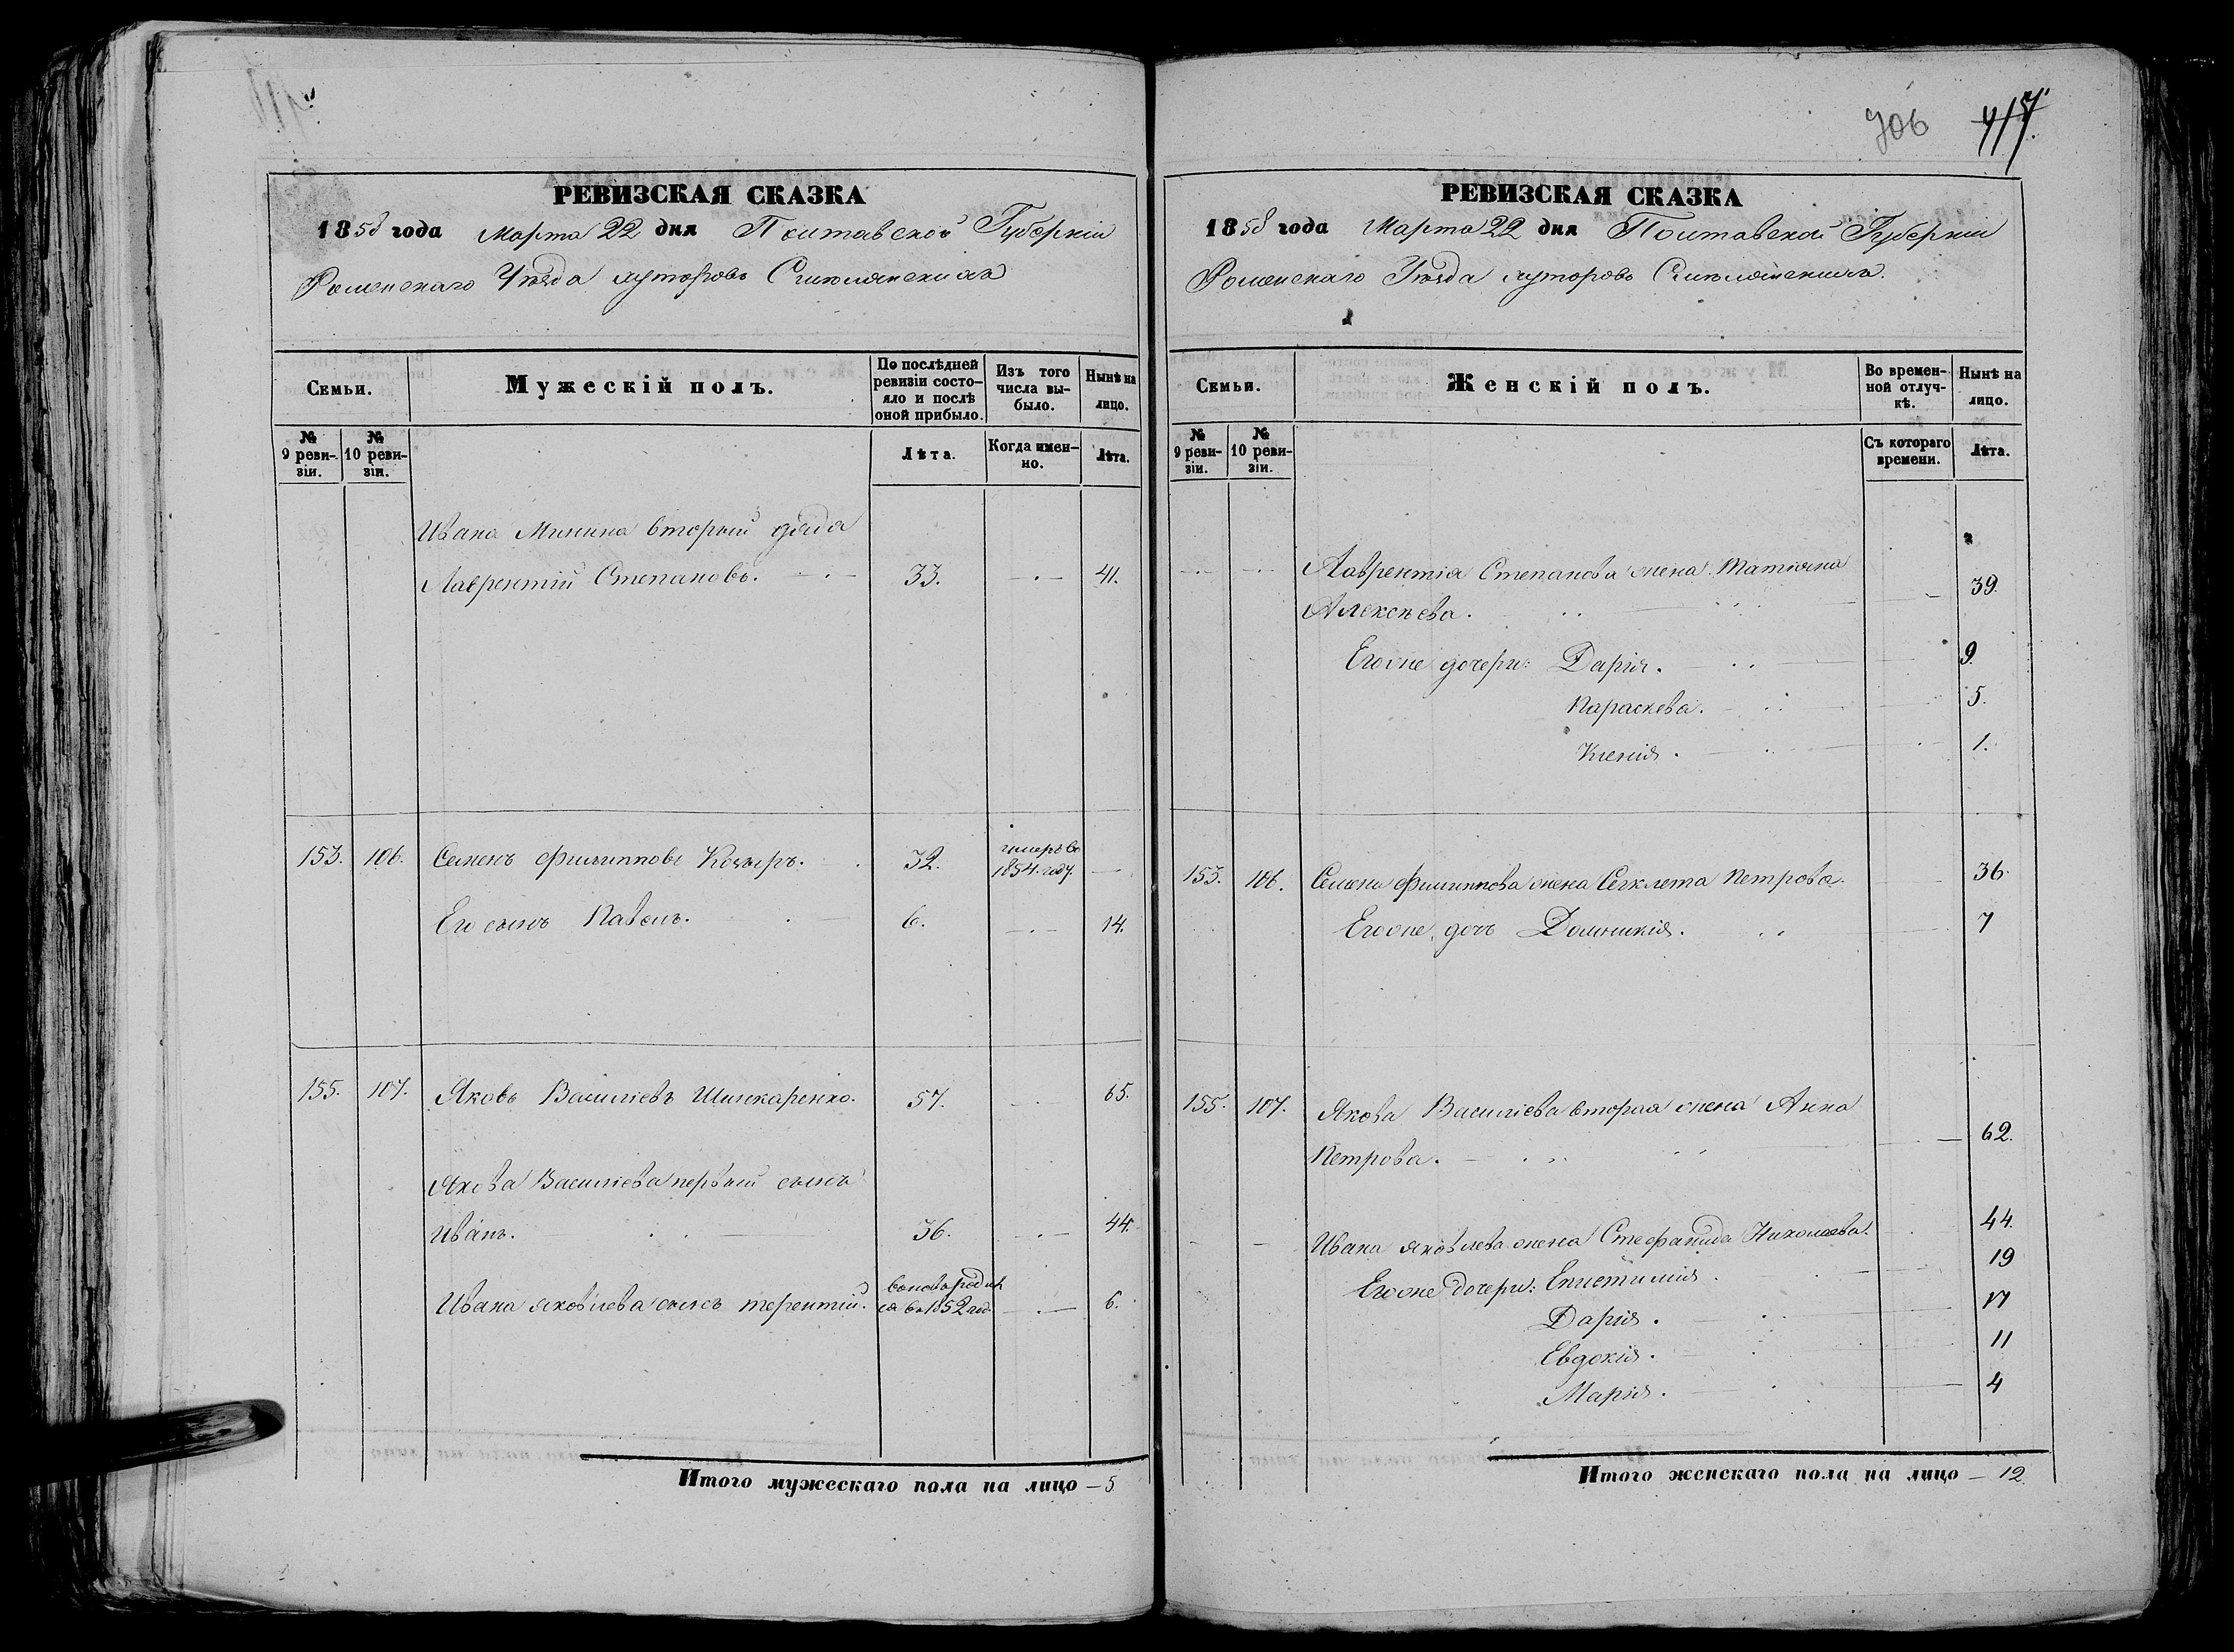 РЕВИЗСКАЯ СКАЗКА
1858 года Марта 22 дня Полтавской Губерніи
Роменскаго Уѣзда хуторовъ
Семьи. Мужескій полъ. По послѣдней ревизіи состояло и послѣ оной прибыло. Изъ того числа выбыло. Нынѣ на лицо.
№ 9 ревизіи. № 10 ревизіи. Лѣта. Когда именно. Лѣта.
Ивана Минина вторый дядя
Лаврентій Степановъ. 33. 41.
153. 106. Семенъ Филипповъ Козыръ. 32. умеръ въ 1854. году.
Его сынъ Павелъ. 6. 14.
155. 107. Яковъ Василіевъ Шинкаренко. 57. 65.
Якова Василіева первый сынъ
Иванъ. 36. 44.
Ивана Яковлева сынъ Терентій. вновь родился въ 1852 год. 6.
Итого мужескаго пола на лицо — 5
706 417.
РЕВИЗСКАЯ СКАЗКА
1858 года Марта 22 дня Полтавской Губерніи
Роменскаго Уѣзда хуторовъ
Семьи. Женскій полъ. Во временной отлучкѣ. Нынѣ на лицо.
№ 9 ревизіи. № 10 ревизіи. Съ котораго времени. Лѣта.
Лаврентія Степанова жена Татіяна
Алексѣева. 39.
Его же дочери: Дарія. 9.
Параскева. 5.
Ксенія. 1.
153. 106. Семена Филиппова жена Секлета Петрова. 36.
Его же дочь Домникія. 7
155. 107. Якова Василіева вторая жена Анна
Петрова. 62.
Ивана Яковлева жена Стефанида Николаева. 44.
Его же дочери: Епистимія. 19
Дарія. 17
Евдокія. 11
Марія. 4
Итого женскаго пола на лицо — 12